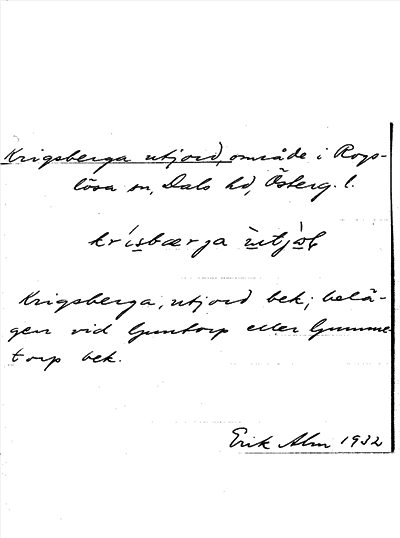 Krigsberga utjord, område i Rogs-
lösa sn, Dals hd, Österg. l.
krísbærja ùtjòḷ
Krigsberga, utjord bek; belä-
gen vid Guntorp eller Gumme-
torp bek.
Erik Alm 1932